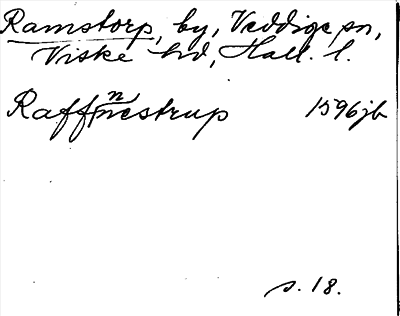 Ramstorp, by, Veddige sn,
Viske hd, Hall. l.
Raffnestrup 1596 jb
s. 18.